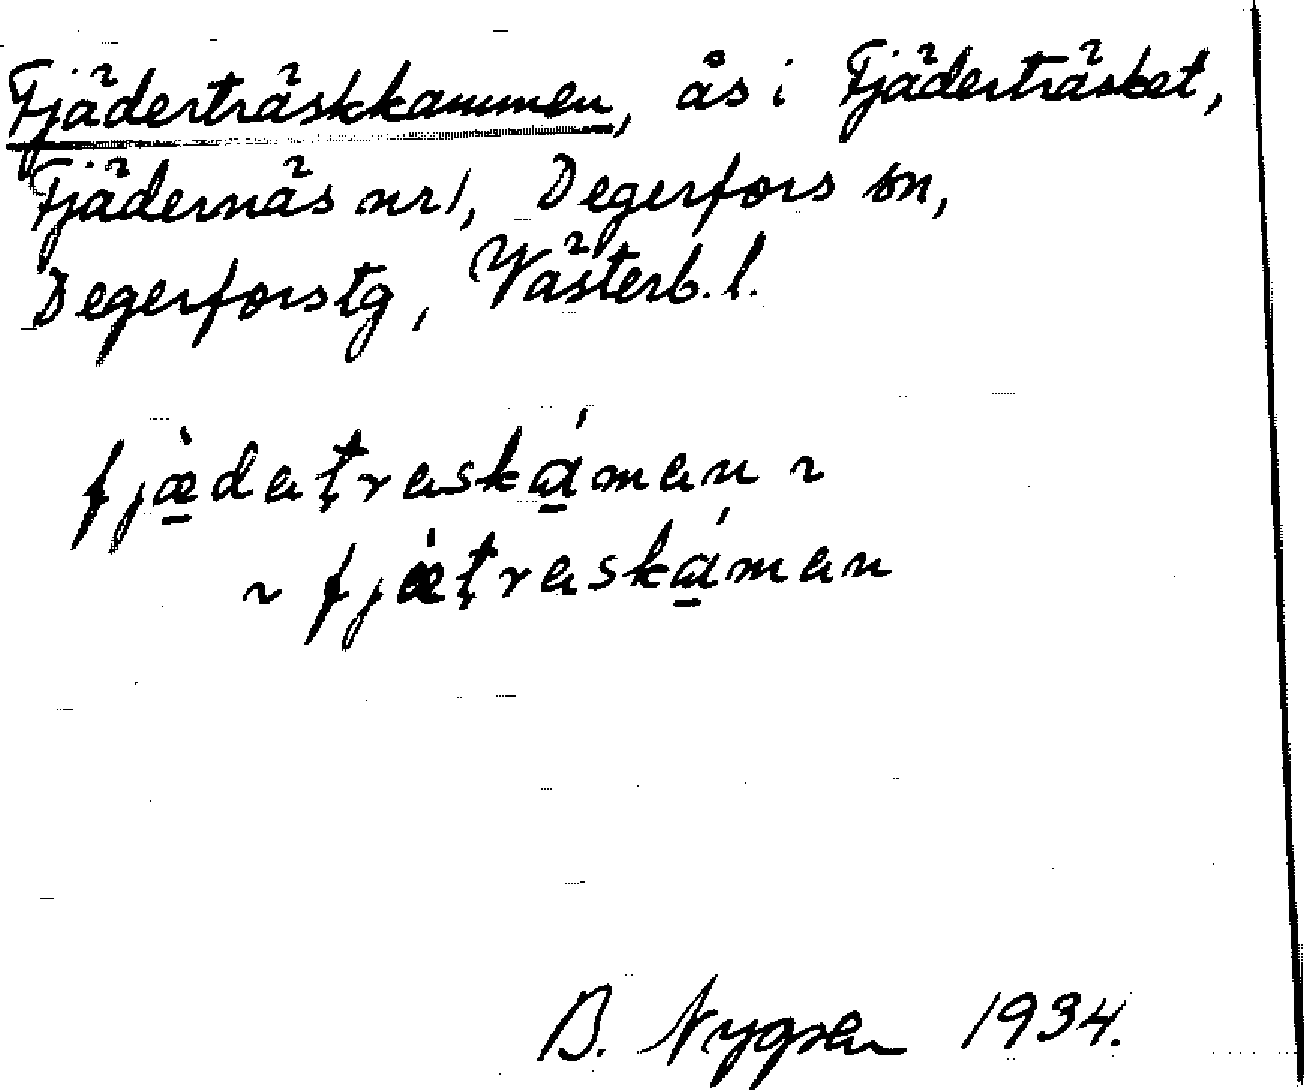 Fjäderträskkammen, ås i Fjäderträsket,
Fjädernäs nr 1, Degerfors sn,
Degerfors tg, Västerb. l.
fjæ̀datraskáman ~
~ fjæ̀traskáman
B. Nygren 1934.